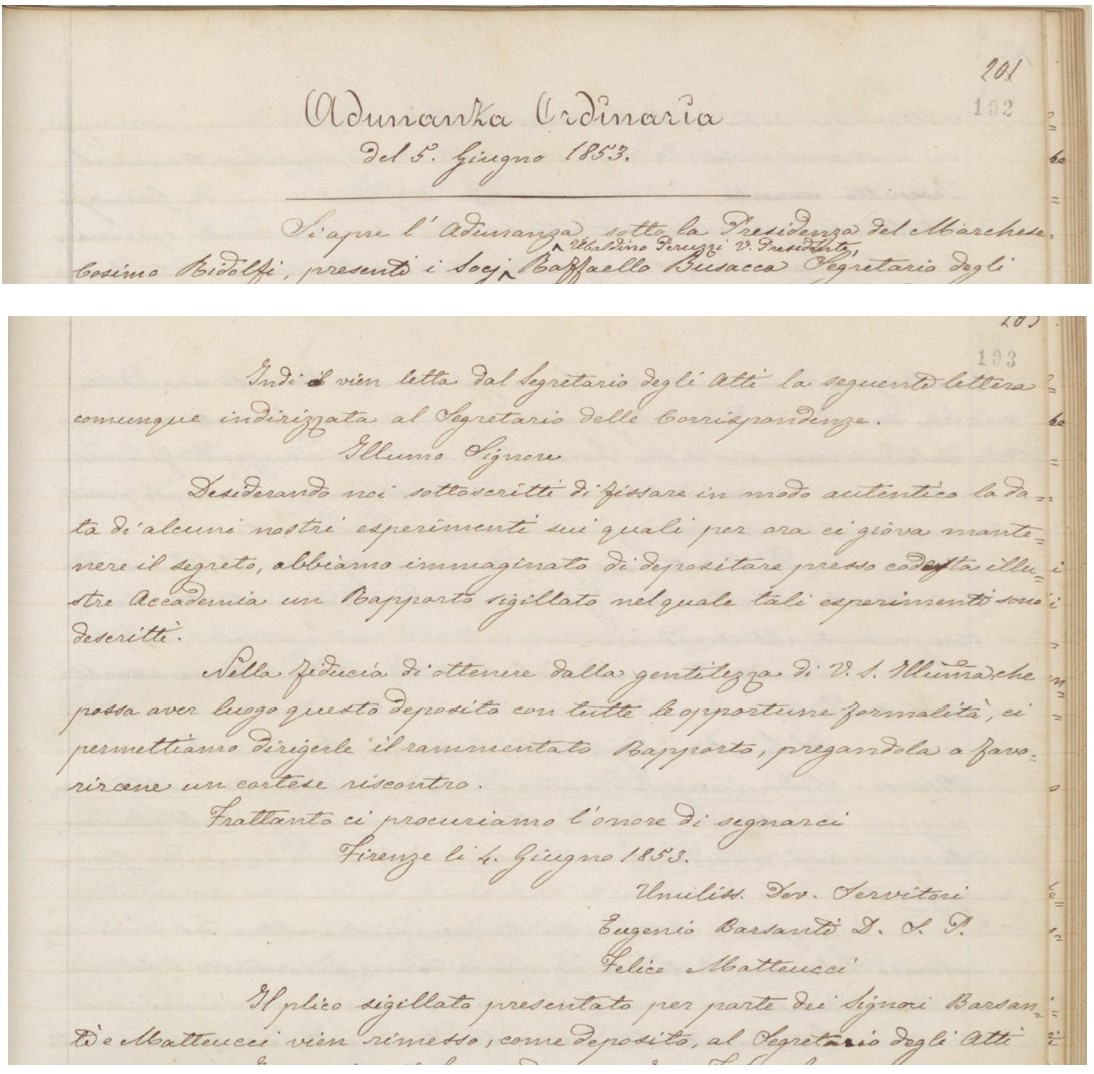 201
102
Adunanza Ordinaria
del 5. Giugno 1853.
Si apre l'Adunanza, sotto la Presidenza del Marchese
Ubaldino Peruzzi V. Presidente,
Cosimo Ridolfi, presenti i Socj Raffaello Busacca Segretario degli
103
Indi vien letta dal Segretario degli Atti la seguente lettera
comunque indirizzata al Segretario delle Corrispondenze.
Illumo Signore
Desiderando noi sottoscritti di fissare in modo autentico la da=
ta di alcuni nostri esperimenti sui quali per ora ci giova mante=
nere il segreto, abbiamo immaginato di depositare presso codesta illu=
stre Accademia un Rapporto sigillato nel quale tali esperimenti sono
descritti.
Nella fiducia di ottenere dalla gentilezza di V. S. Illuma che
possa aver luogo questo deposito con tutte le opportune formalità, ci
permettiamo dirigerle il rammentato Rapporto, pregandola a favo=
rircene un cortese riscontro.
Frattanto ci procuriamo l'onore di segnarci
Firenze li 4. Giugno 1853.
Umiliss. Dev. Servitori
Eugenio Barsanti D. S. P.
Felice Matteucci
Il plico sigillato presentato per parte dei Signori Barsan=
ti e Matteucci vien rimesso, come deposito, al Segretario degli Atti